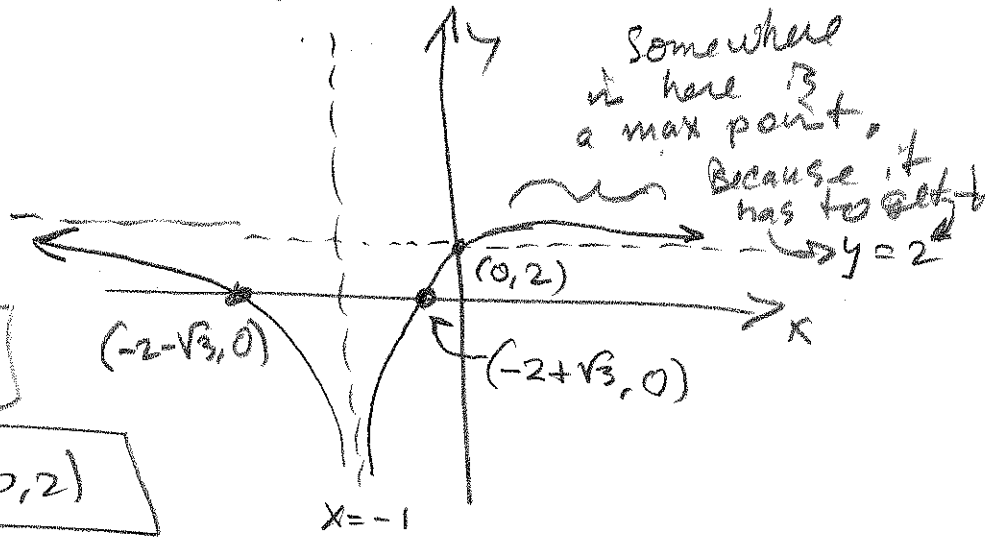 y
Somewhere
in here is
a max point.
Because it
has to
y = 2
(0, 2)
x
(-2-√3, 0)
(-2+√3, 0)
0, 2)
x = -1